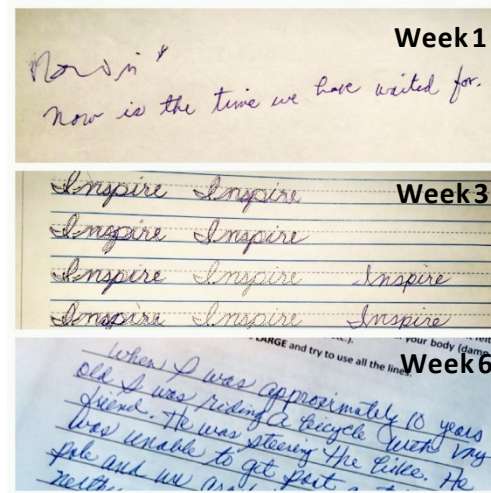 Week 1
Now is the time we have waited for.
Week 3
Inspire Inspire
Inspire Inspire
Inspire Inspire Inspire
Inspire Inspire Inspire
Week 6
LARGE and try to use all the lines.
your body (damp
When I was approximately 10 years
old I was riding a bicycle with my
friend. He was steering the bike. He
was unable to get past a
pole and we